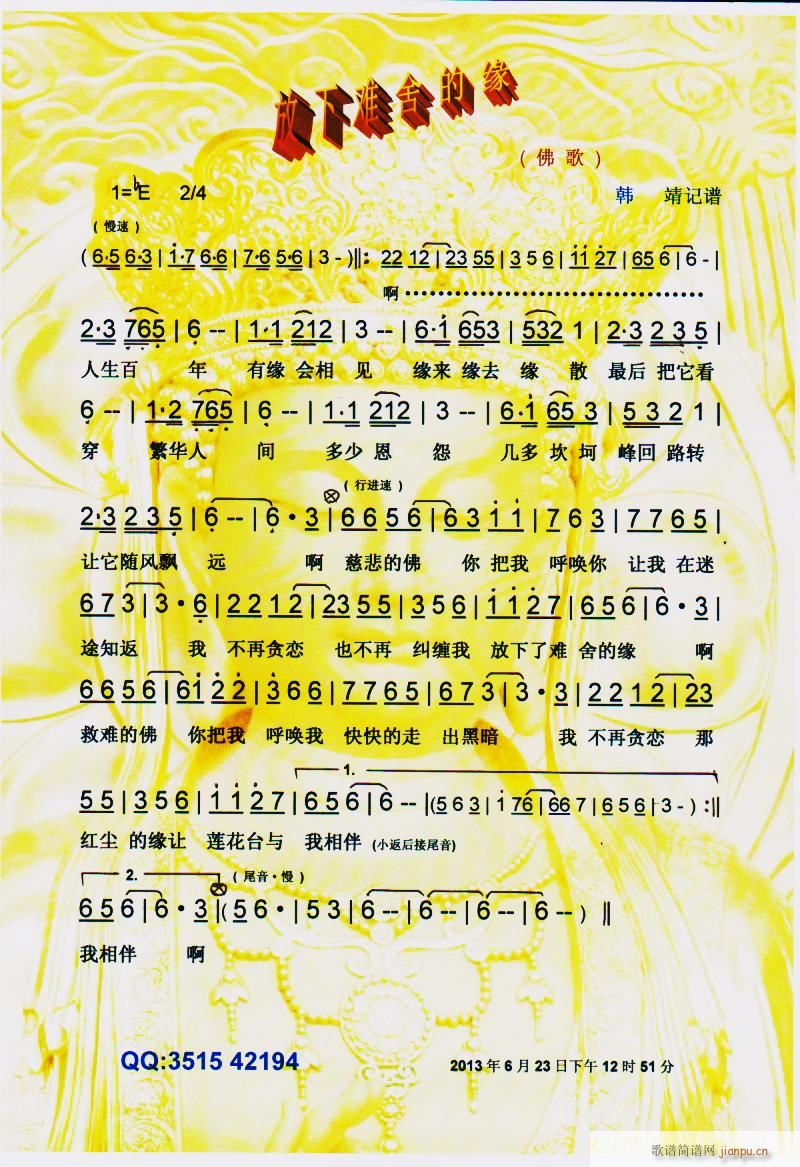 放下难舍的缘
(佛歌)
1=♭E 2/4
韩 靖记谱
(慢速)
(6·5 6·3 | 1·7 6·6 | 7·6 5·6 | 3 - )‖: 22 12 | 23 55 | 3 5 6 | 11 27 | 65 6 | 6 - |
啊·································
2·3 765 | 6 -- | 1·1 212 | 3 -- | 6·1 653 | 532 1 | 2·3 2 3 5 |
人生百 年 有缘 会相 见 缘来 缘去 缘 散 最后 把它看
6 -- | 1·2 765 | 6 -- | 1·1 212 | 3 -- | 6·1 65 3 | 5 3 2 1 |
穿 繁华人 间 多少 恩 怨 几多 坎 坷 峰回 路转
(行进速)
2·3 2 3 5 | 6 -- | 6 · 3 | 6 6 5 6 | 6 3 1 1 | 7 6 3 | 7 7 6 5 |
让它随风飘 远 啊 慈悲的佛 你 把我 呼唤你 让我 在迷
6 7 3 | 3 · 6 | 2 2 1 2 | 23 5 5 | 3 5 6 | 1 1 2 7 | 6 5 6 | 6 · 3 |
途知返 我 不再贪恋 也不再 纠缠我 放下了难 舍的缘 啊
6 6 5 6 | 61 2 2 | 3 6 6 | 7 7 6 5 | 6 7 3 | 3 · 3 | 2 2 1 2 | 23
救难的佛 你把我 呼唤我 快快的走 出黑暗 我 不再贪恋 那
1.
5 5 | 3 5 6 | 1 1 2 7 | 6 5 6 | 6 -- |(5 6 3 | 1 76 | 66 7 | 6 5 6 | 3 - ) :‖
红尘 的缘让 莲花台与 我相伴 (小返后接尾音)
2. (尾音·慢)
6 5 6 | 6 · 3 |( 5 6 · | 5 3 | 6 -- | 6 -- | 6 -- | 6 -- ) ‖
我相伴 啊
QQ:3515 42194
2013 年 6 月 23 日下午 12 时 51 分
歌谱简谱网 jianpu.cn